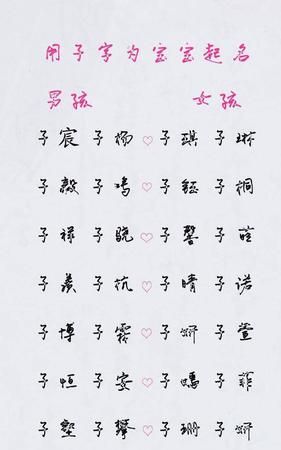 用子字为宝宝起名
男孩 女孩
子宸 子杨 ♡ 子琪 子琳
子毅 子鸣 ♡ 子钰 子桐
子禄 子骁 ♡ 子馨 子萱
子羲 子杭 ♡ 子晴 子诺
子博 子霖 ♡ 子妍 子萱
子恒 子安 ♡ 子嫣 子菲
子塾 子攀 ♡ 子珊 子妍